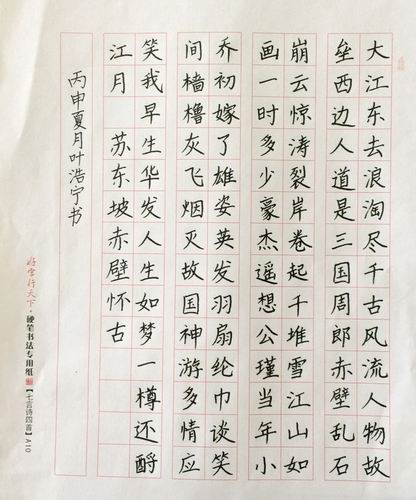 大江东去浪淘尽千古风流人物故
垒西边人道是三国周郎赤壁乱石
崩云惊涛裂岸卷起千堆雪江山如
画一时多少豪杰遥想公瑾当年小
乔初嫁了雄姿英发羽扇纶巾谈笑
间樯橹灰飞烟灭故国神游多情应
笑我早生华发人生如梦一樽还酹
江月 苏东坡赤壁怀古
丙申夏月叶浩宁书
好字行天下·硬笔书法专用纸【七言诗四首】A10